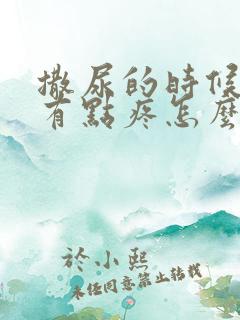 撒尿的時候
有點疼怎麼
於小熙
未经同意禁止转载